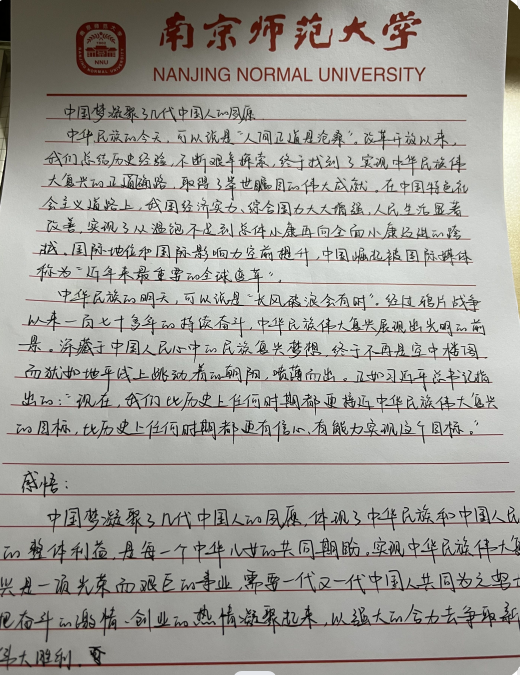 南京师范大学
NANJING NORMAL UNIVERSITY
NNU
中国梦凝聚了几代中国人的夙愿
中华民族的今天，可以说是“人间正道是沧桑”。改革开放以来，
我们总结历史经验，不断艰辛探索，终于找到了实现中华民族伟
大复兴的正确道路，取得了举世瞩目的伟大成就。在中国特色社
会主义道路上，我国经济实力、综合国力大大增强，人民生活显著
改善，实现了从温饱不足到总体小康再向全面小康迈进的跨
越。国际地位和国际影响力空前提升，中国崛起被国际媒体
称为“近年来最重要的全球变革”。
中华民族的明天，可以说是“长风破浪会有时”。经过鸦片战争
以来一百七十多年的持续奋斗，中华民族伟大复兴展现出光明的前
景。深藏于中国人民心中的民族复兴梦想，终于不再是空中楼阁
而犹如地平线上跳动着的朝阳，喷薄而出。正如习近平总书记指
出的：“现在，我们比历史上任何时期都更接近中华民族伟大复兴
的目标，比历史上任何时期都更有信心、有能力实现这个目标。”
感悟：
中国梦凝聚了几代中国人的夙愿，体现了中华民族和中国人民
的整体利益，是每一个中华儿女的共同期盼。实现中华民族伟大复
兴是一项光荣而艰巨的事业，需要一代又一代中国人共同为之努力
把奋斗的激情、创业的热情凝聚起来，以强大的合力去争取新的
伟大胜利。